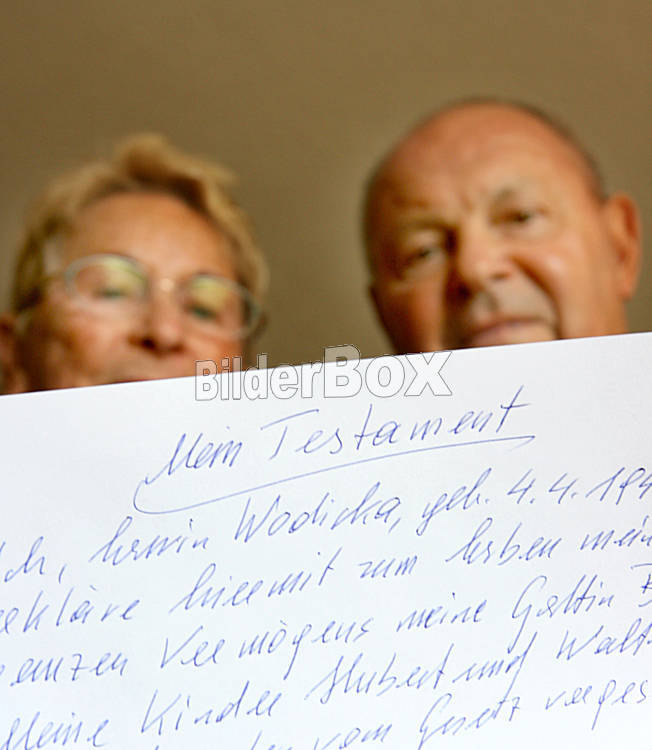 BilderBOX
Mein Testament
Ich, Erwin Wodicka, geb. 4.4.194
erkläre hiermit zum Erben mein
ganzen Vermögens meine Gattin
Meine Kinder Hubert und Walt
vom Gesetz vorges